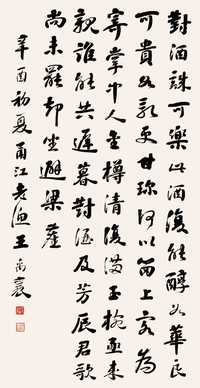 對酒誠可樂此酒復能醇如華良
可貴似乳更甘珍何以留上客為
寄掌中人金樽清復滿玉椀亟來
親誰能共遲暮對酒及芳辰君歌
尚未罷却坐避梁塵
辛酉初夏甬江老漁王禹襄